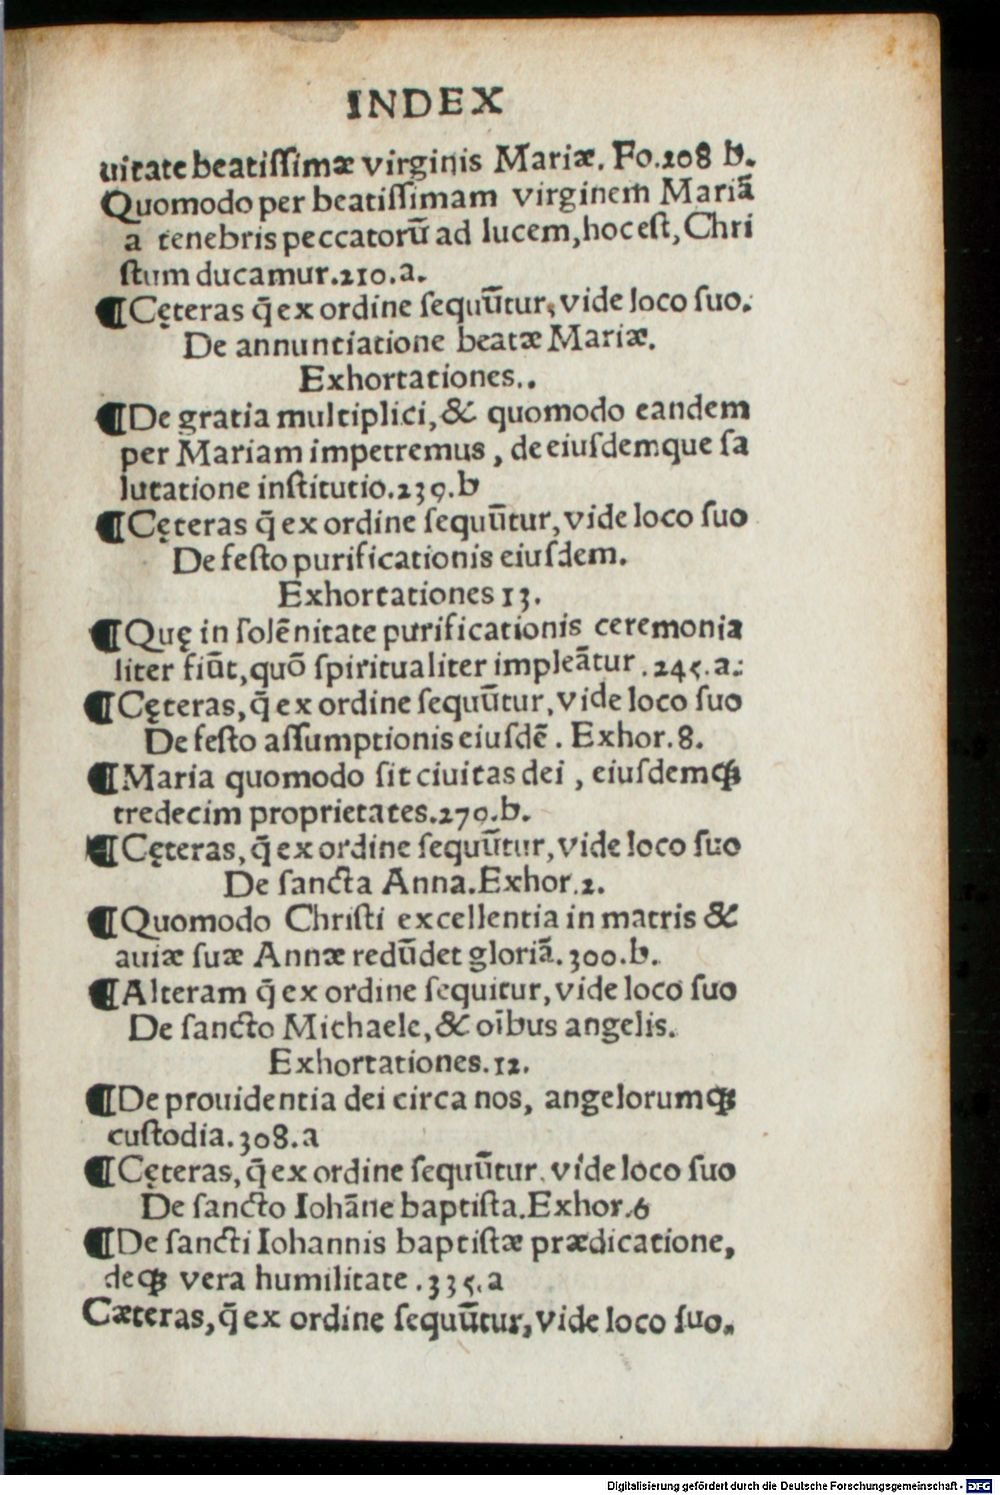 INDEX
uitate beatiſſimæ virginis Mariæ. Fo.208 b.
Quomodo per beatiſſimam virginem Mariā
a tenebris peccatorū ad lucem, hoc eſt, Chri
ſtum ducamur.210.a.
¶Cęteras q̄ ex ordine ſequūtur, vide loco ſuo.
De annunciatione beatæ Mariæ.
Exhortationes..
¶De gratia multiplici, & quomodo eandem
per Mariam impetremus, de eiuſdemque ſa
lutatione inſtitutio.239.b
¶Cęteras q̄ ex ordine ſequūtur, vide loco ſuo
De feſto purificationis eiuſdem.
Exhortationes 13.
¶Quę in ſolēnitate purificationis ceremonia
liter fiūt, quō ſpiritualiter impleātur .245.a.:
¶Cęteras, q̄ ex ordine ſequūtur, vide loco ſuo
De feſto aſſumptionis eiuſdē . Exhor.8.
¶Maria quomodo ſit ciuitas dei , eiuſdemq́ꝫ
tredecim proprietates.279.b.
¶Cęteras, q̄ ex ordine ſequūtur, vide loco ſuo
De ſancta Anna.Exhor.2.
¶Quomodo Chriſti excellentia in matris &
auiæ ſuæ Annæ redūdet gloriā.300.b.
¶Alteram q̄ ex ordine ſequitur, vide loco ſuo
De ſancto Michaele, & oībus angelis.
Exhortationes.12.
¶De prouidentia dei circa nos, angelorumq́ꝫ
cuſtodia.308.a
¶Cęteras, q̄ ex ordine ſequūtur, vide loco ſuo
De ſancto Iohāne baptiſta.Exhor.6
¶De ſancti Iohannis baptiſtæ prædicatione,
deq́ꝫ vera humilitate .335.a
Cæteras, q̄ ex ordine ſequūtur, vide loco ſuo.
Digitalisierung gefördert durch die Deutsche Forschungsgemeinschaft - DFG